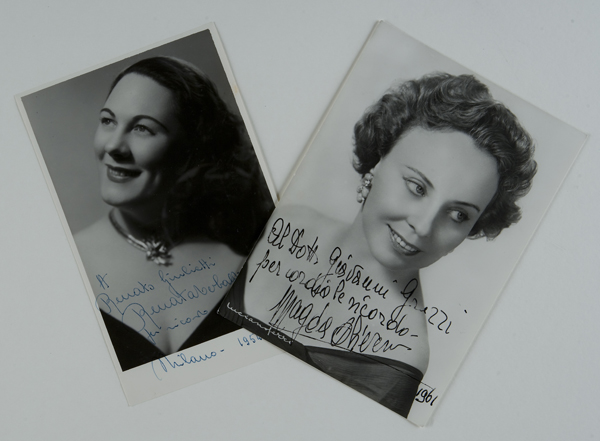 A
Renato Giulietti
Renata Tebaldi
in ricordo
Milano - 1950
Al Dott. Giovanni Grezzi
per cordiale ricordo -
Magda Olivero
1961